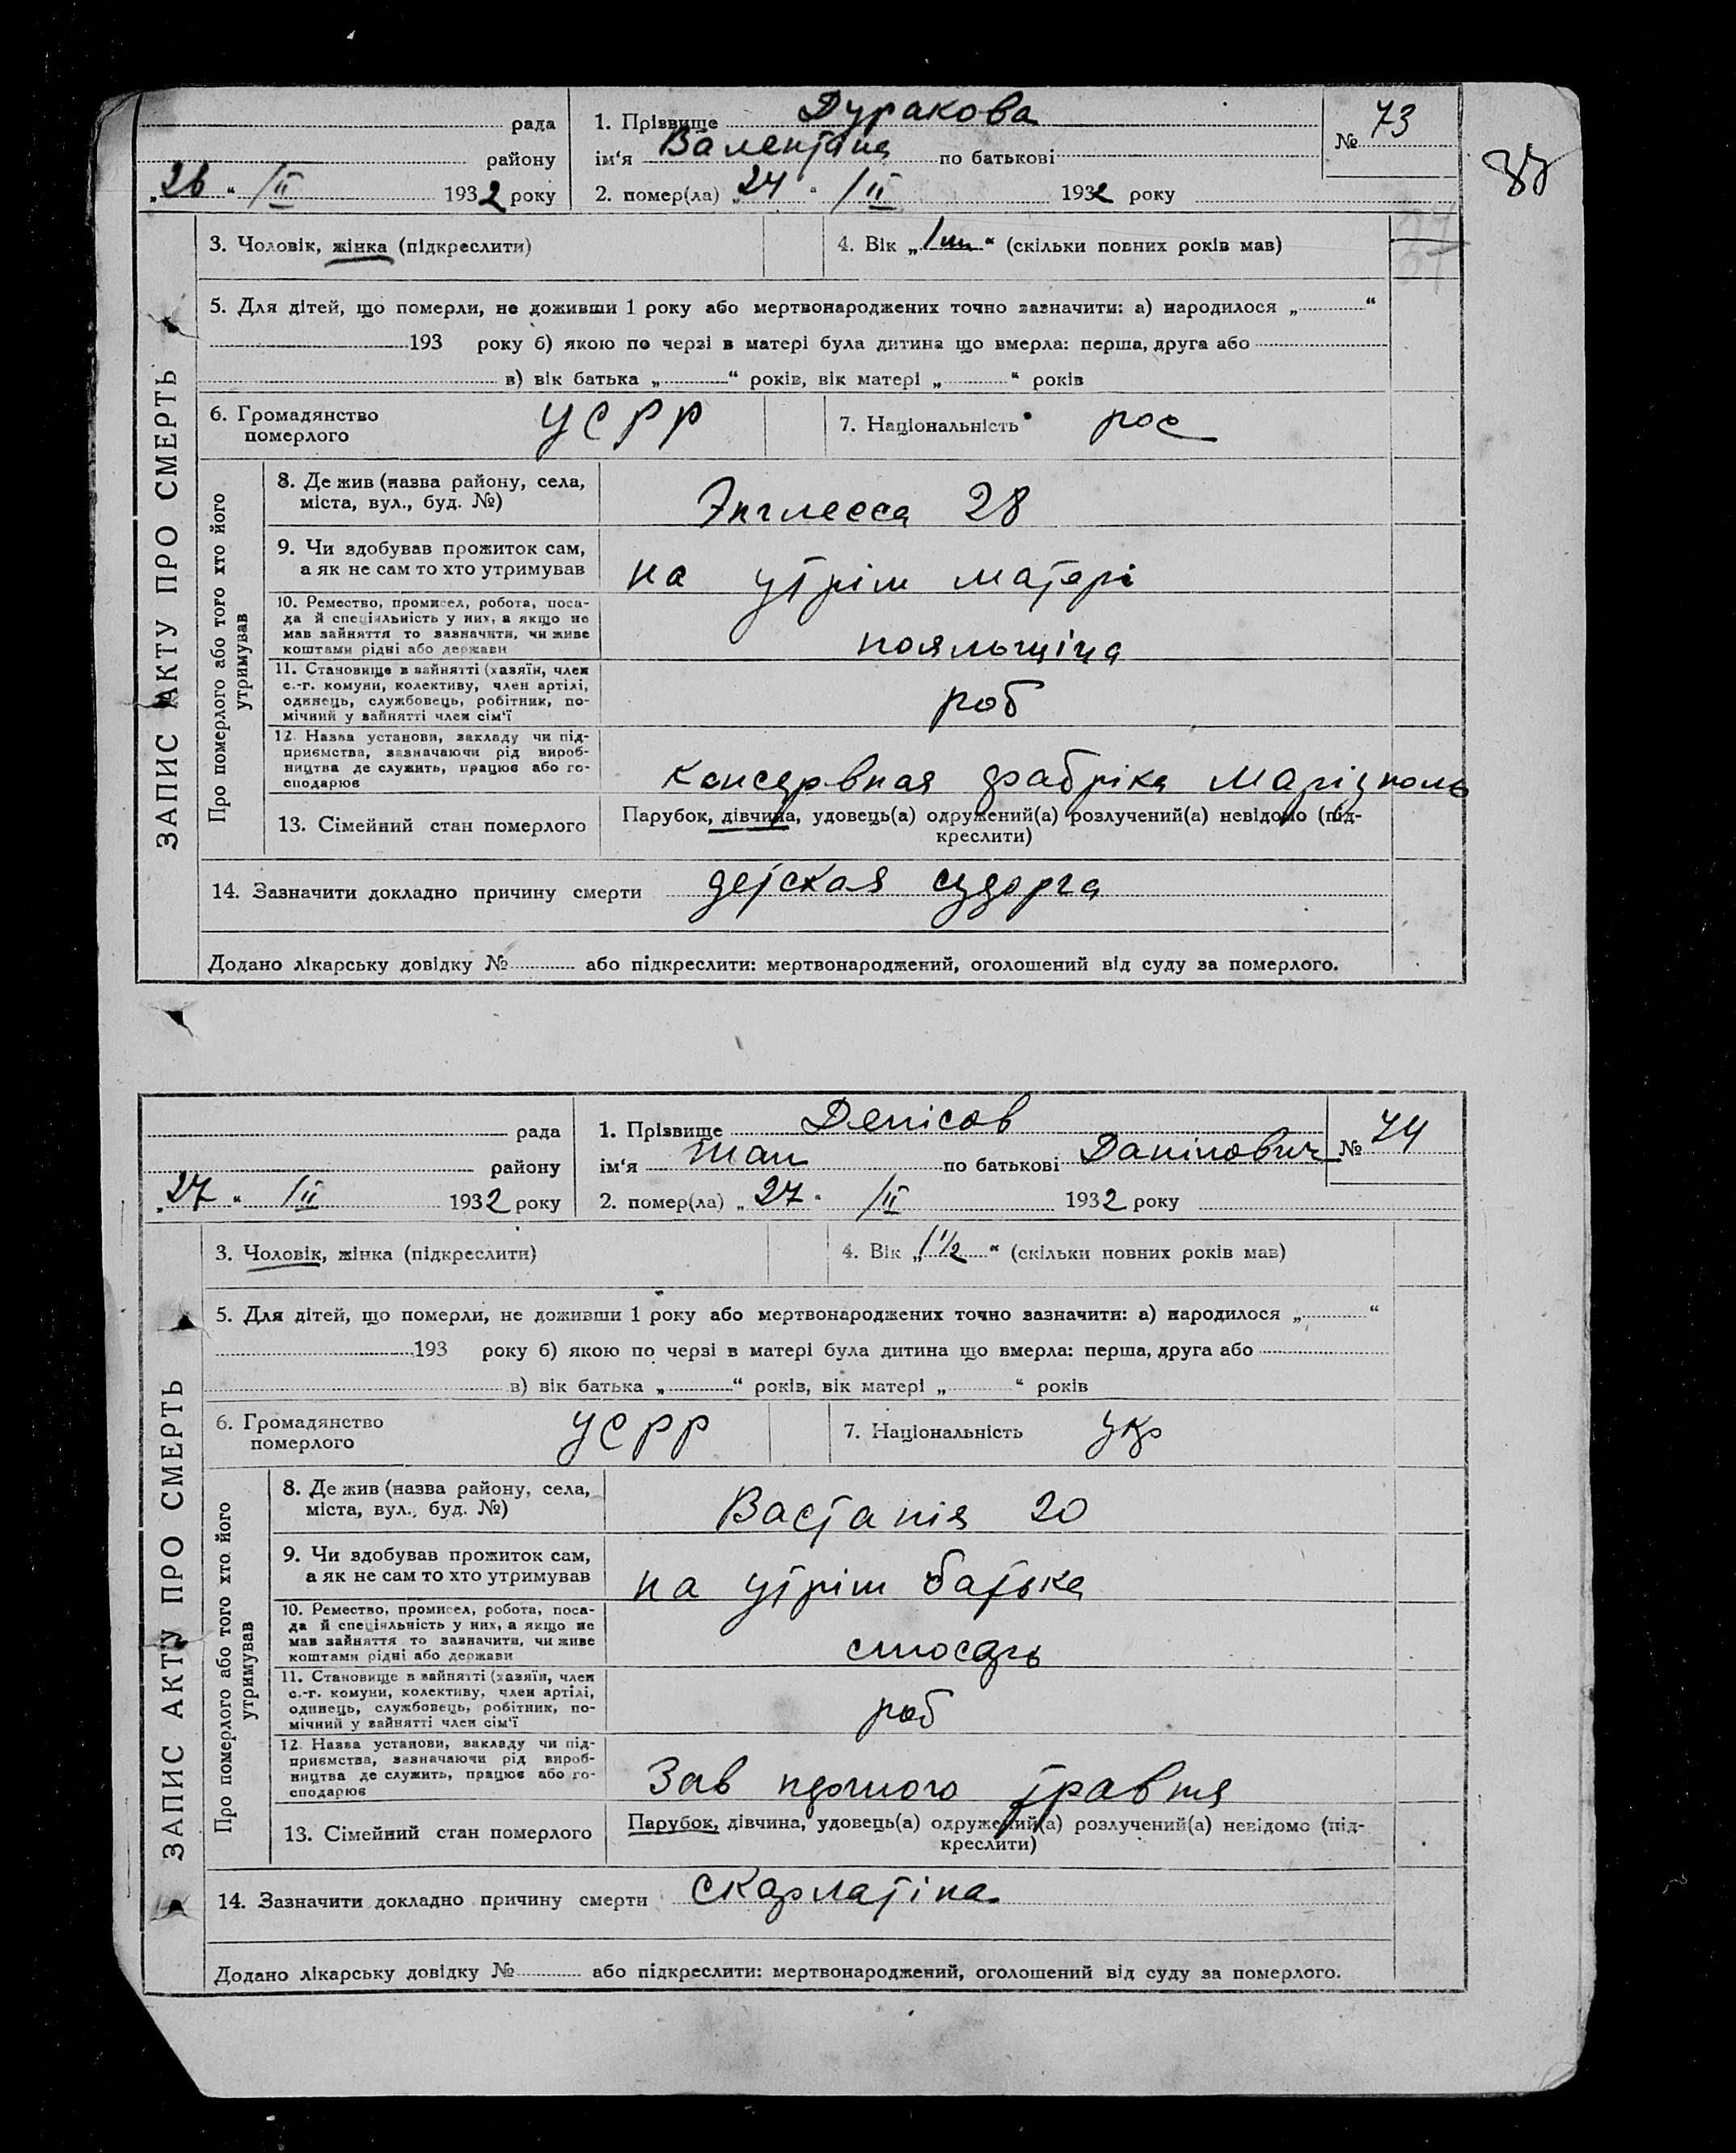 рада
району
„26“ /II 1932 року
1. Прізвище Дуракова
ім‘я Валентіна по батькові
2. помер(ла) „24“ /II 1932 року
№ 73
ЗАПИС АКТУ ПРО СМЕРТЬ
3. Чоловік, жінка (підкреслити)
4. Вік „1 “ (скільки повних років мав)
5. Для дітей, що померли, не доживши 1 року або мертвонароджених точно зазначити: а) народилося „ “
193 року б) якою по черзі в матері була дитина що вмерла: перша, друга або
в) вік батька „ “ років, вік матері „ “ років
6. Громадянство
померлого
УСРР
7. Національність рос
Про померлого або того хто його
утримував
8. Де жив (назва району, села,
міста, вул., буд. №)
Энглесса 28
9. Чи здобував прожиток сам,
а як не сам то хто утримував
на утрім матері
10. Ремество, промисел, робота, поса-
да й спеціяльність у них, а якщо не
мав зайняття то зазначити, чи живе
коштами рідні або держави
пояльщіца
11. Становище в зайнятті (хазяїн, член
с.-г. комуни, колективу, член артілі,
одинець, службовець, робітник, по-
мічний у зайнятті член сім‘ї
роб
12. Назва установи, закладу чи під-
приємства, зазначаючи рід вироб-
ництва де служить, працює або го-
сподарює
Консервная фабріка Маріуполь
13. Сімейний стан померлого
Парубок, дівчина, удовець(а) одружений(а) розлучений(а) невідомо (під-
креслити)
14. Зазначити докладно причину смерти детская судорга
Додано лікарську довідку № або підкреслити: мертвонароджений, оголошений від суду за померлого.
рада
району
„27“ /II 1932 року
1. Прізвище Денісов
ім‘я по батькові Данілович
2. помер(ла) „27“ /II 1932 року
№ 74
ЗАПИС АКТУ ПРО СМЕРТЬ
3. Чоловік, жінка (підкреслити)
4. Вік „1 1/2“ (скільки повних років мав)
5. Для дітей, що померли, не доживши 1 року або мертвонароджених точно зазначити: а) народилося „ “
193 року б) якою по черзі в матері була дитина що вмерла: перша, друга або
в) вік батька „ “ років, вік матері „ “ років
6. Громадянство
померлого
УСРР
7. Національність укр
Про померлого або того хто його
утримував
8. Де жив (назва району, села,
міста, вул., буд. №)
Вастанія 20
9. Чи здобував прожиток сам,
а як не сам то хто утримував
на утрім батька
10. Ремество, промисел, робота, поса-
да й спеціяльність у них, а якщо не
мав зайняття то зазначити, чи живе
коштами рідні або держави
слюсарь
11. Становище в зайнятті (хазяїн, член
с.-г. комуни, колективу, член артілі,
одинець, службовець, робітник, по-
мічний у зайнятті член сім‘ї
роб
12. Назва установи, закладу чи під-
приємства, зазначаючи рід вироб-
ництва де служить, працює або го-
сподарює
Зав першого травня
13. Сімейний стан померлого
Парубок, дівчина, удовець(а) одружений(а) розлучений(а) невідомо (під-
креслити)
14. Зазначити докладно причину смерти скарлатіна
Додано лікарську довідку № або підкреслити: мертвонароджений, оголошений від суду за померлого.